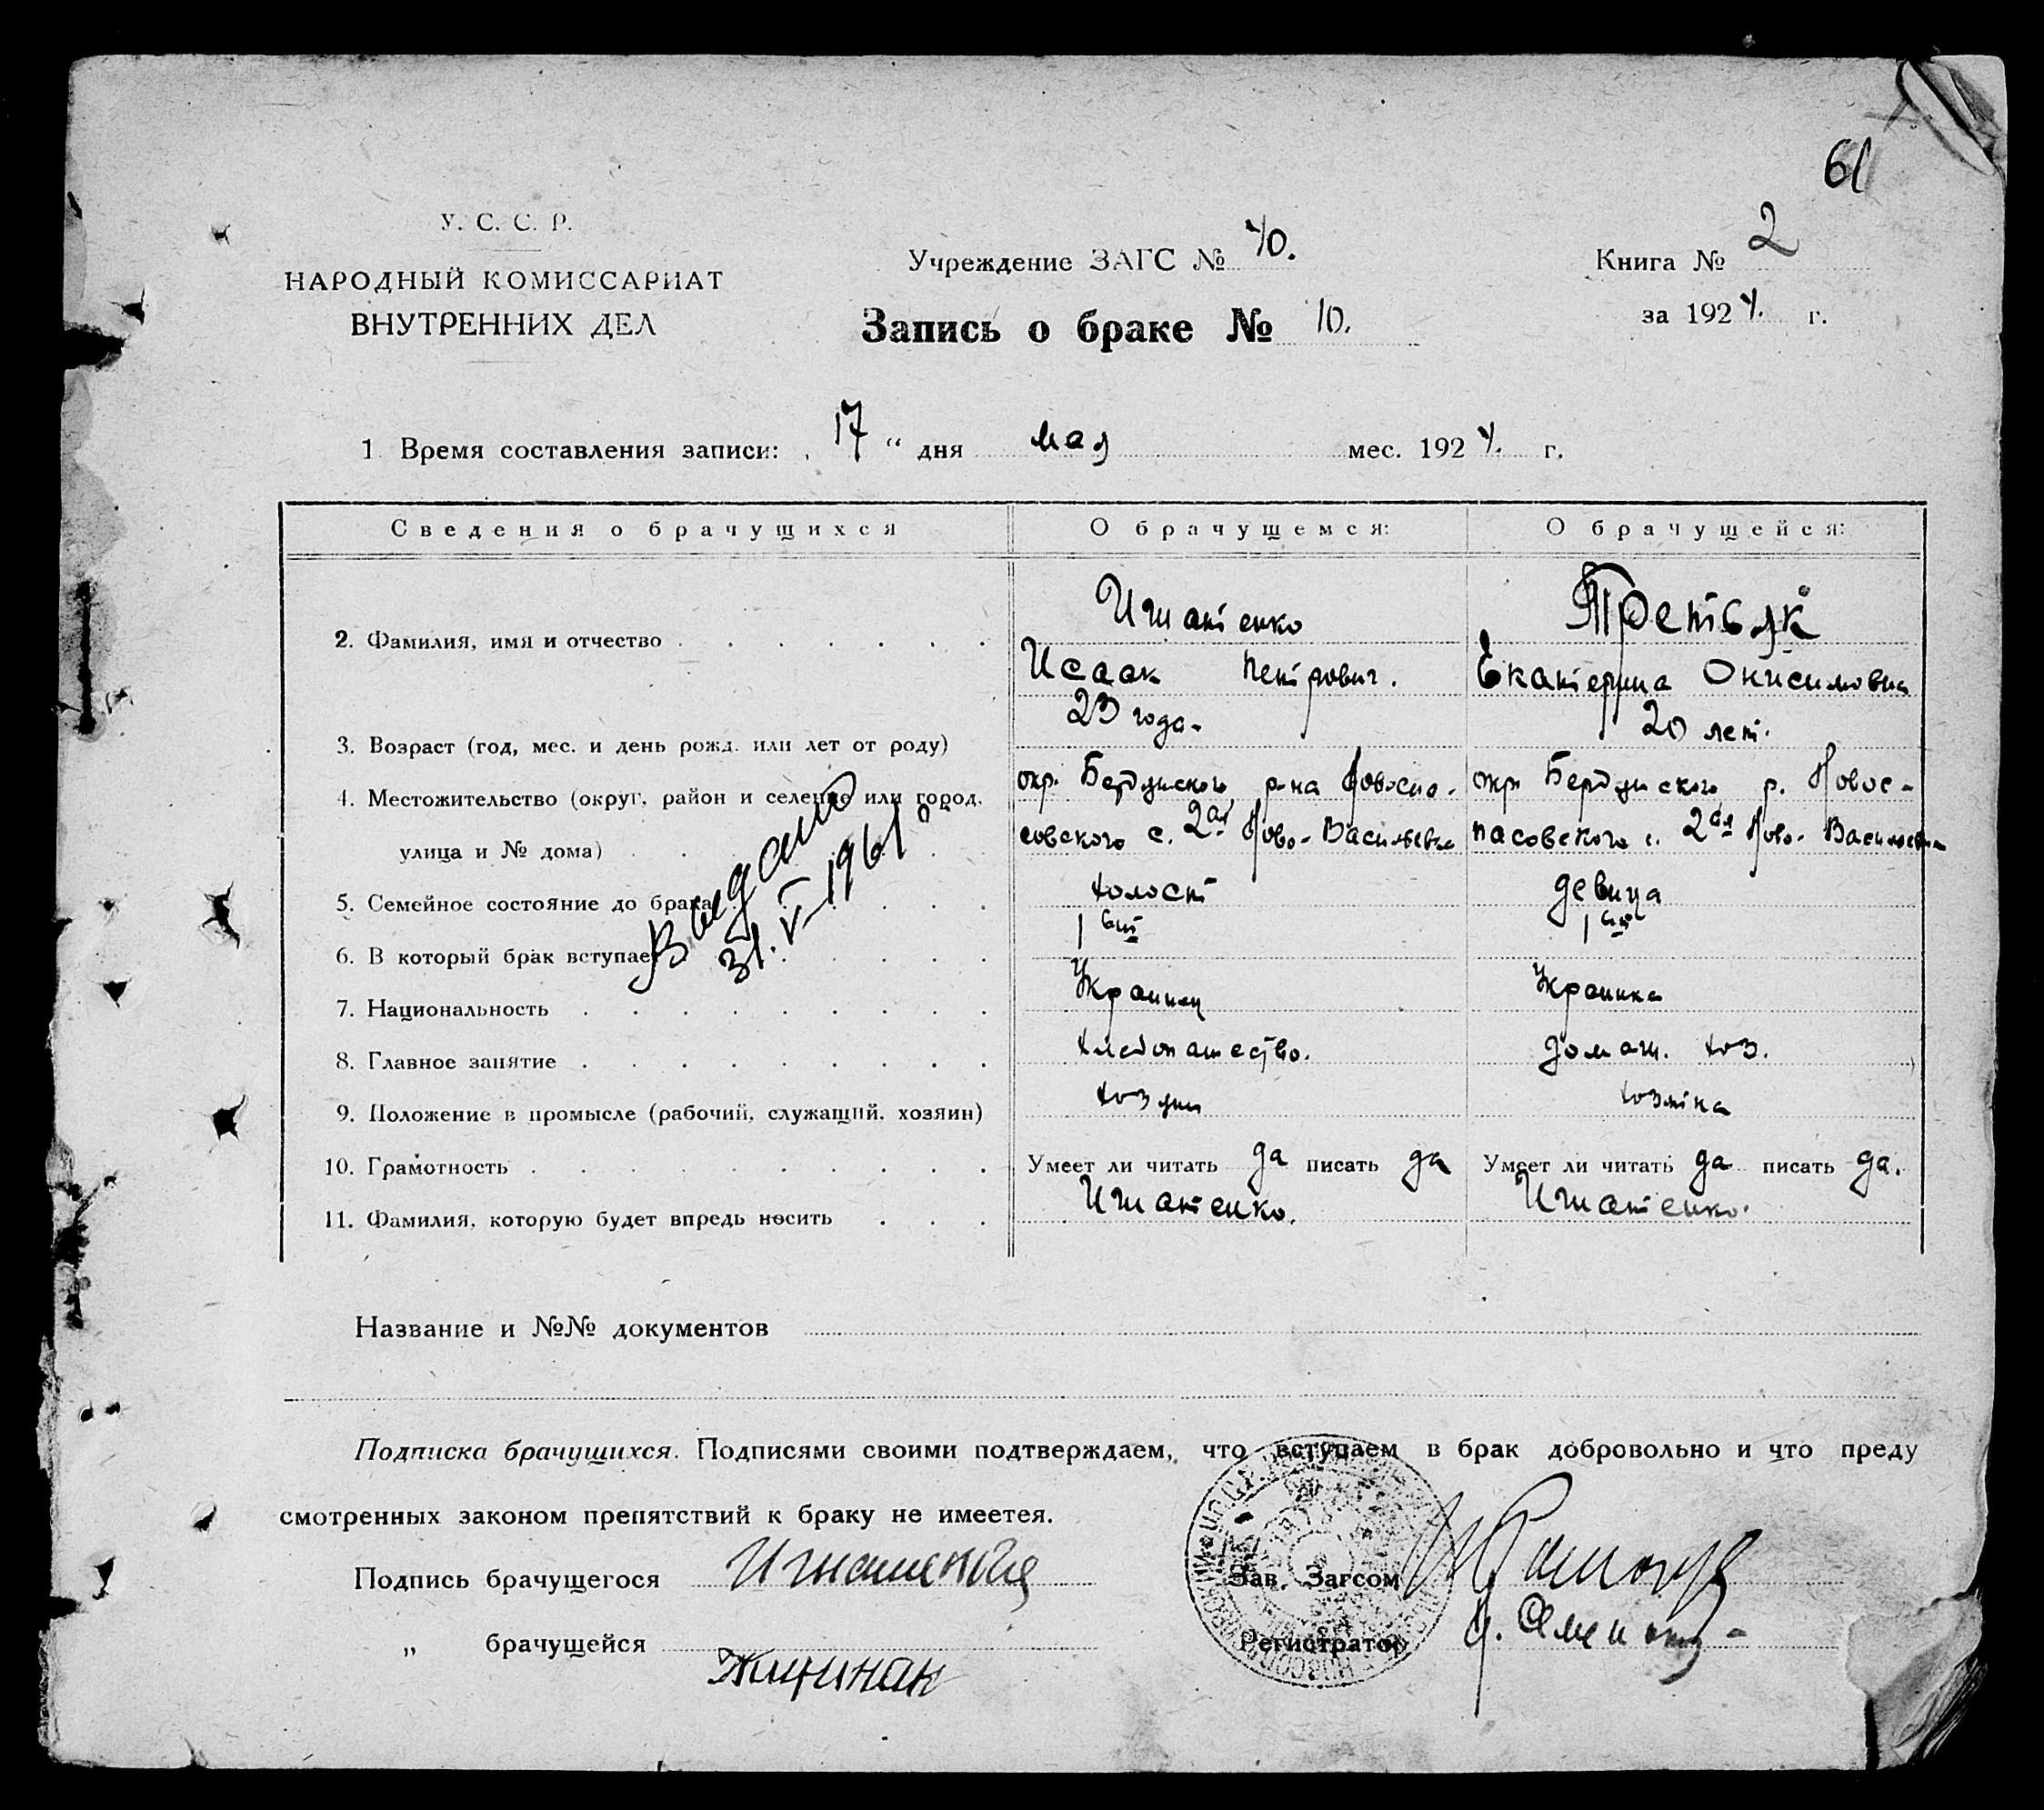 61
У. С. С. Р.
НАРОДНЫЙ КОМИССАРИАТ
ВНУТРЕННИХ ДЕЛ
Учреждение ЗАГС №
Книга № 2
Запись о браке № 10.
за 192 г.
1. Время составления записи: 17 " дня мая мес. 192 г.
Сведения о брачущихся О брачущемся: О брачущейся:
Игнатенко Третьяк
2. Фамилия, имя и отчество
Исаак Петрович. Екатерина Онисимовна
23 года. 20 лет.
3. Возраст (год, мес. и день рожд. или лет от роду)
4. Местожительство (округ, район и селение или город, окр. Бердянского р-на Новоспа- окр Бердянского р. Новос-
улица и № дома) совского с. 2ая Ново-Васильевка пасовского с. 2ая Ново-Васильевка
5. Семейное состояние до брака холост девица
6. В который брак вступает 1ый 1ый
7. Национальность Украинец Украинка
8. Главное занятие хлебопашество. домаш. хоз.
9. Положение в промысле (рабочий, служащий, хозяин) хозяин хозяйка
10. Грамотность Умеет ли читать да писать да Умеет ли читать да писать да.
11. Фамилия, которую будет впредь носить Игнатенко. Игнатенко.
Выдано
31. V-1961
Название и №№ документов
Подписка брачущихся. Подписями своими подтверждаем, что вступаем в брак добровольно и что преду
смотренных законом препятствий к браку не имеется.
Подпись брачущегося Зав. Загсом
„ брачущейся Регистратор